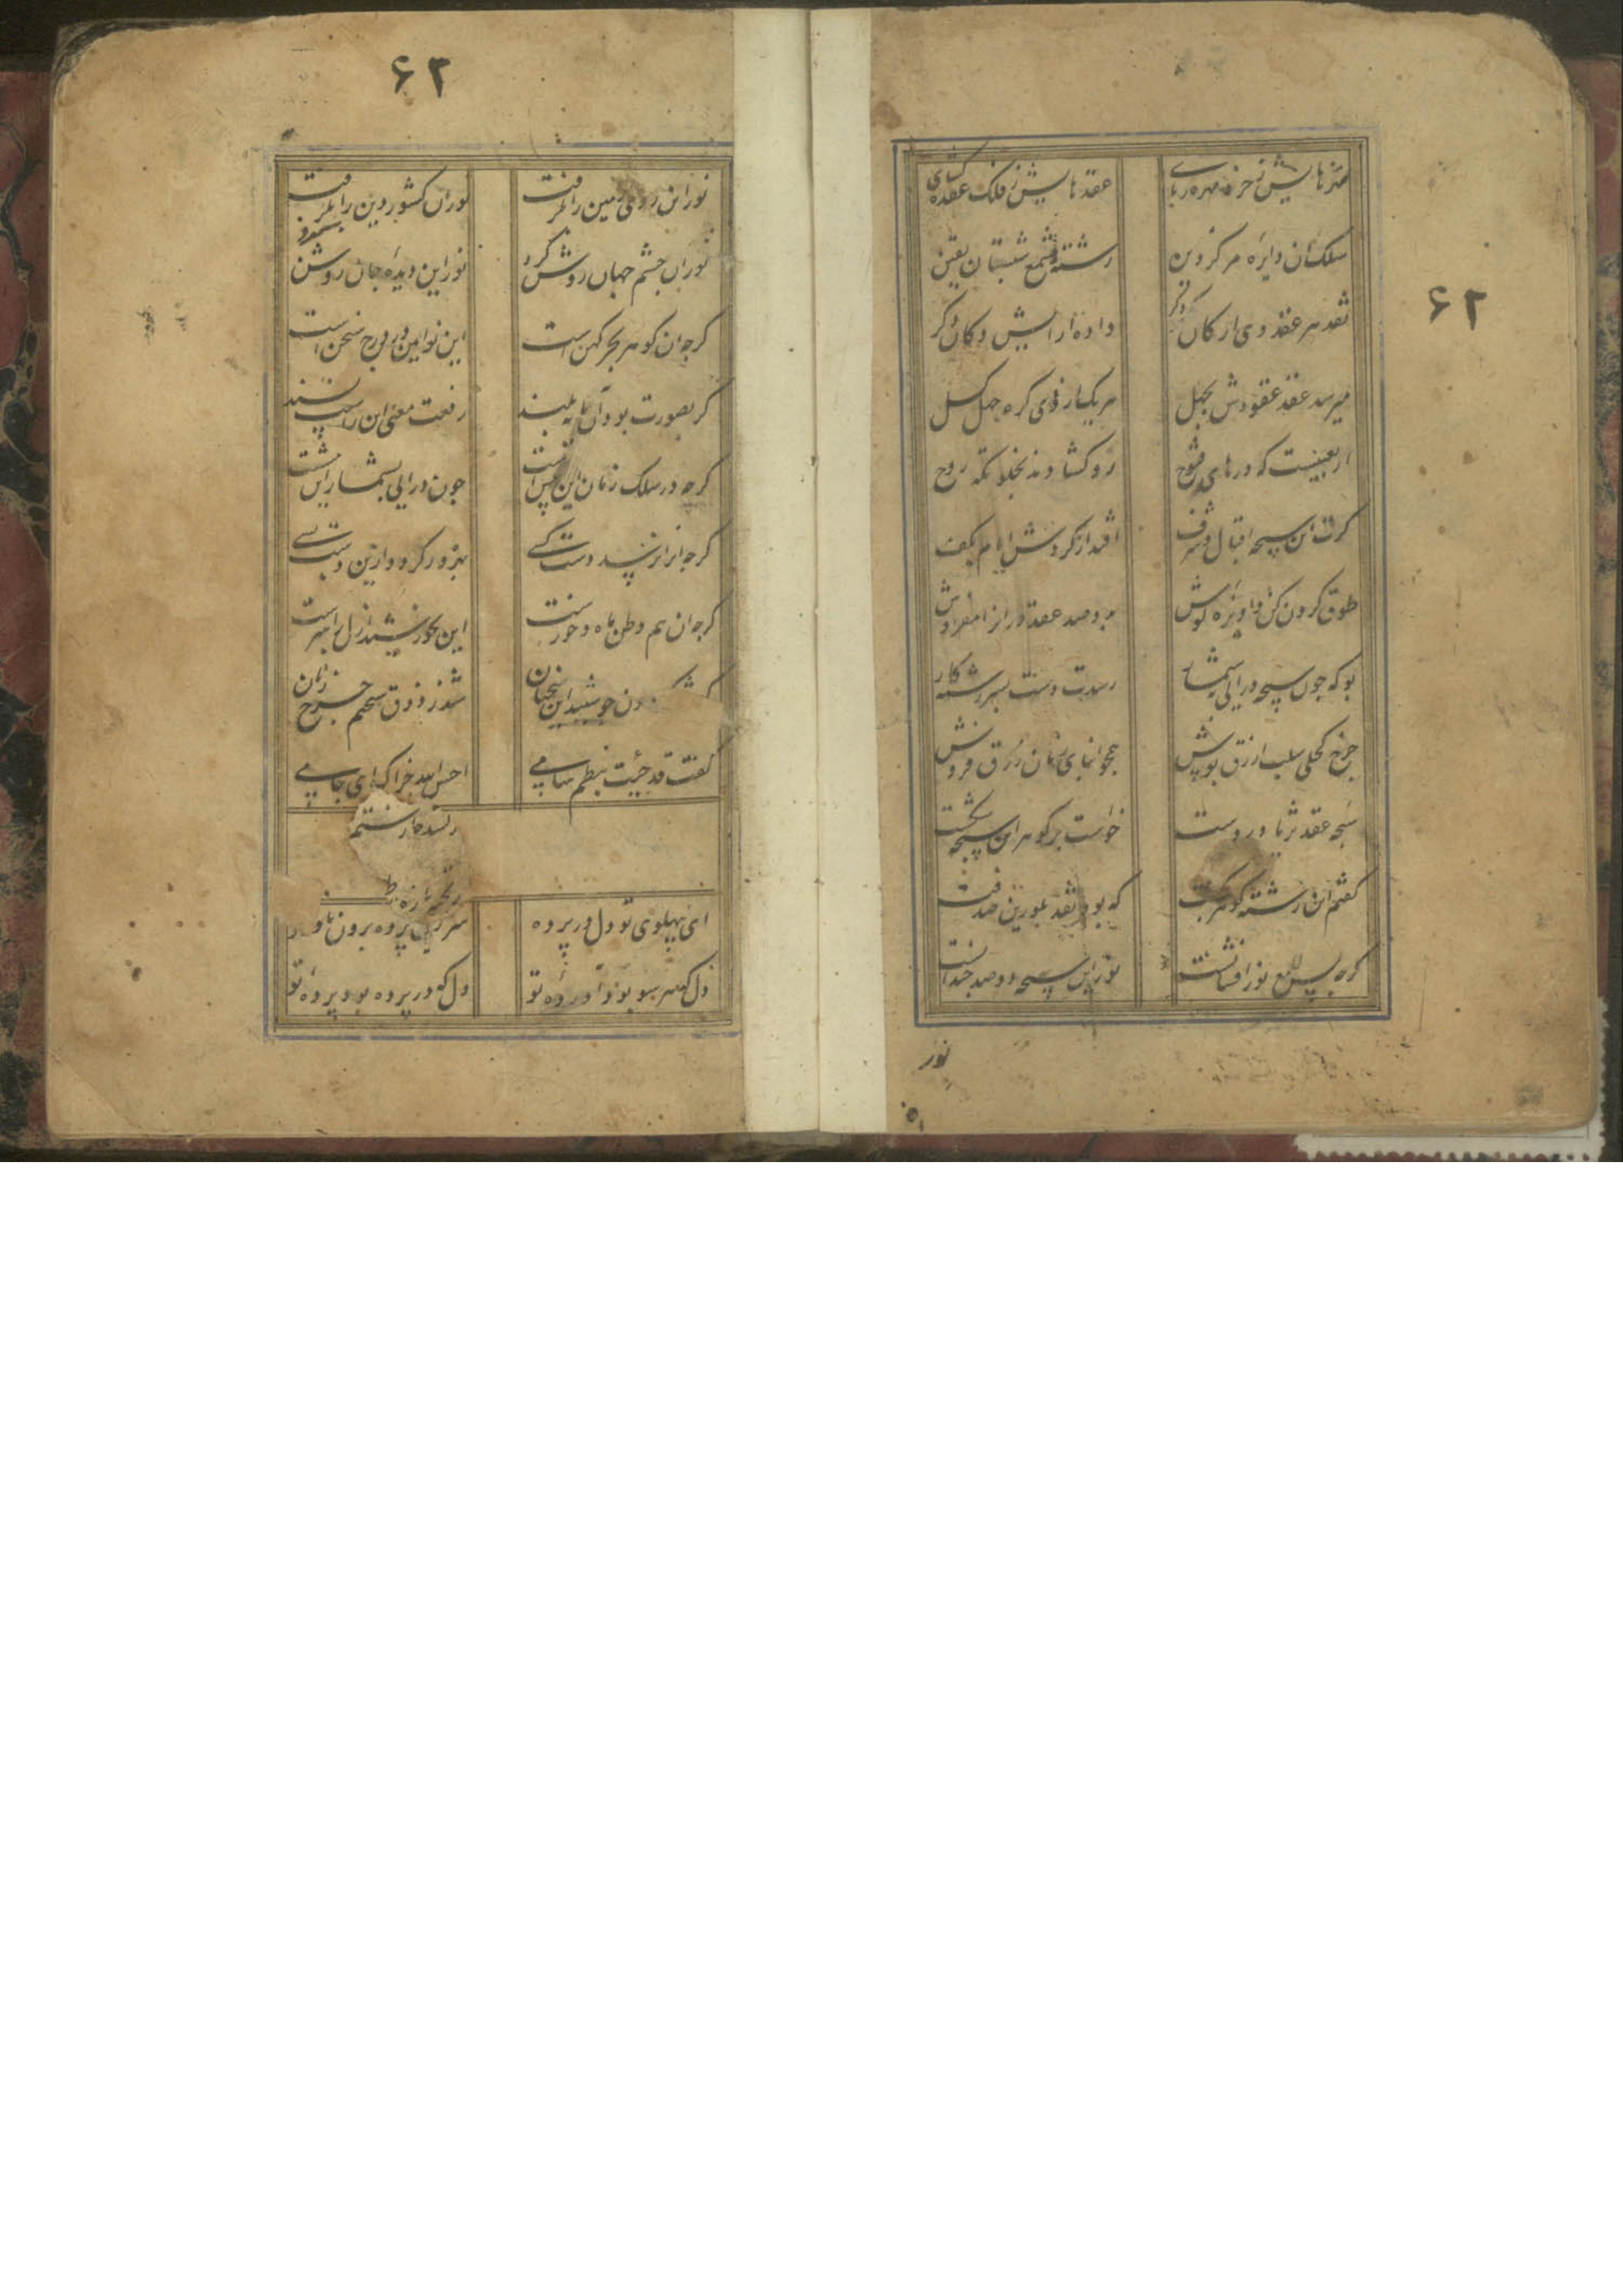 ۶۲
مهرهایش ز خرد مهره ربای عقدهایش ز فلک عقده کشای
سلک ان دایره مرکز دین رشته شمع شبستان یقین
نقد هر عقد وی از کان دکر داده ارایش دکان دکر
میرسد عقد عقودش بچهل هر یک از وی کره جهل کسل
اربعینیست که درهای فتوح روکشاده بخلوتکه روح
کرت این سبحه اقبال و شرف افتد از کردش ایام بکف
طوق کردن کن و اویزه کوش صد عقد در از مفروش
بو که چون سبحه درایی بشمار رسدت دست بسررشته کار
چرخ کحلی سلب ازرق پوش جو نمای زرق فروش
سبحه عقد ثریا در دست خواست بر کوهر این سبحه شکست
کفتم این رشته کوهر که بود نقد بلورین صدفت
کرچه بس لامع نور افشانست نور این سبحه دو صد چندانست
نور
۶۲
نور ان روی زمین را بکرفت نور این کشور دین را بکرفت
نور ان چشم جهان روشن کرد نور این دیده جان روشن
کرچه ان کوهر بحر کهن است این نو ایین در درج سخن است
کر بصورت بود آن پایه بلند رفعت معنی این را بپسند
کرچه در سلک زمان این پس ازانست چون درایی بشمار این
کرچه انرا نرسد دست کسی بهره ور کرده ازین دست بسی
کرچه ان هم وطن ماه و خورست این بخورشید ازل راهبرست
چون شنید این سخنان شد ز ذوق سخنم چرخ زنان
کفت قد جئت بنظم سامی احسن الله جزاک ای جامی
ای بپهلوی تو دل در پرده سر ازین پرده برون ناورده
دل که در پرده بود پرده تو